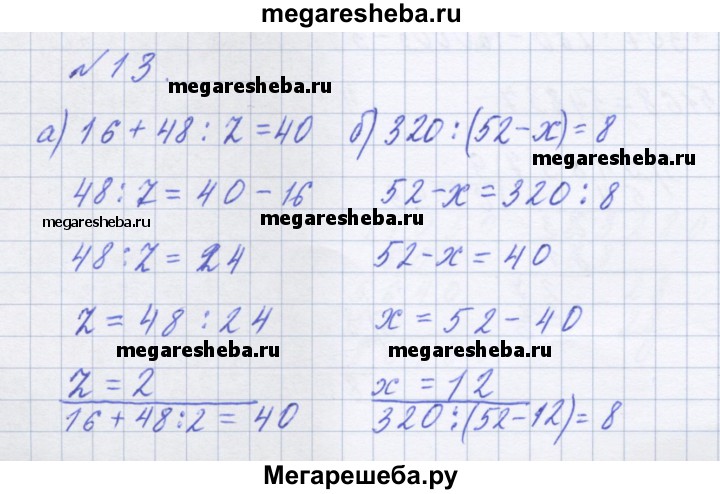 megaresheba.ru
№ 13.
megaresheba.ru
а) 16 + 48 : z = 40
б) 320 : (52 - x) = 8
megaresheba.ru
48 : z = 40 - 16
52 - x = 320 : 8
megaresheba.ru
megaresheba.ru
48 : z = 24
52 - x = 40
z = 48 : 24
x = 52 - 40
megaresheba.ru
megaresheba.ru
z = 2
x = 12
16 + 48 : 2 = 40
320 : (52 - 12) = 8
Мегарешеба.ру